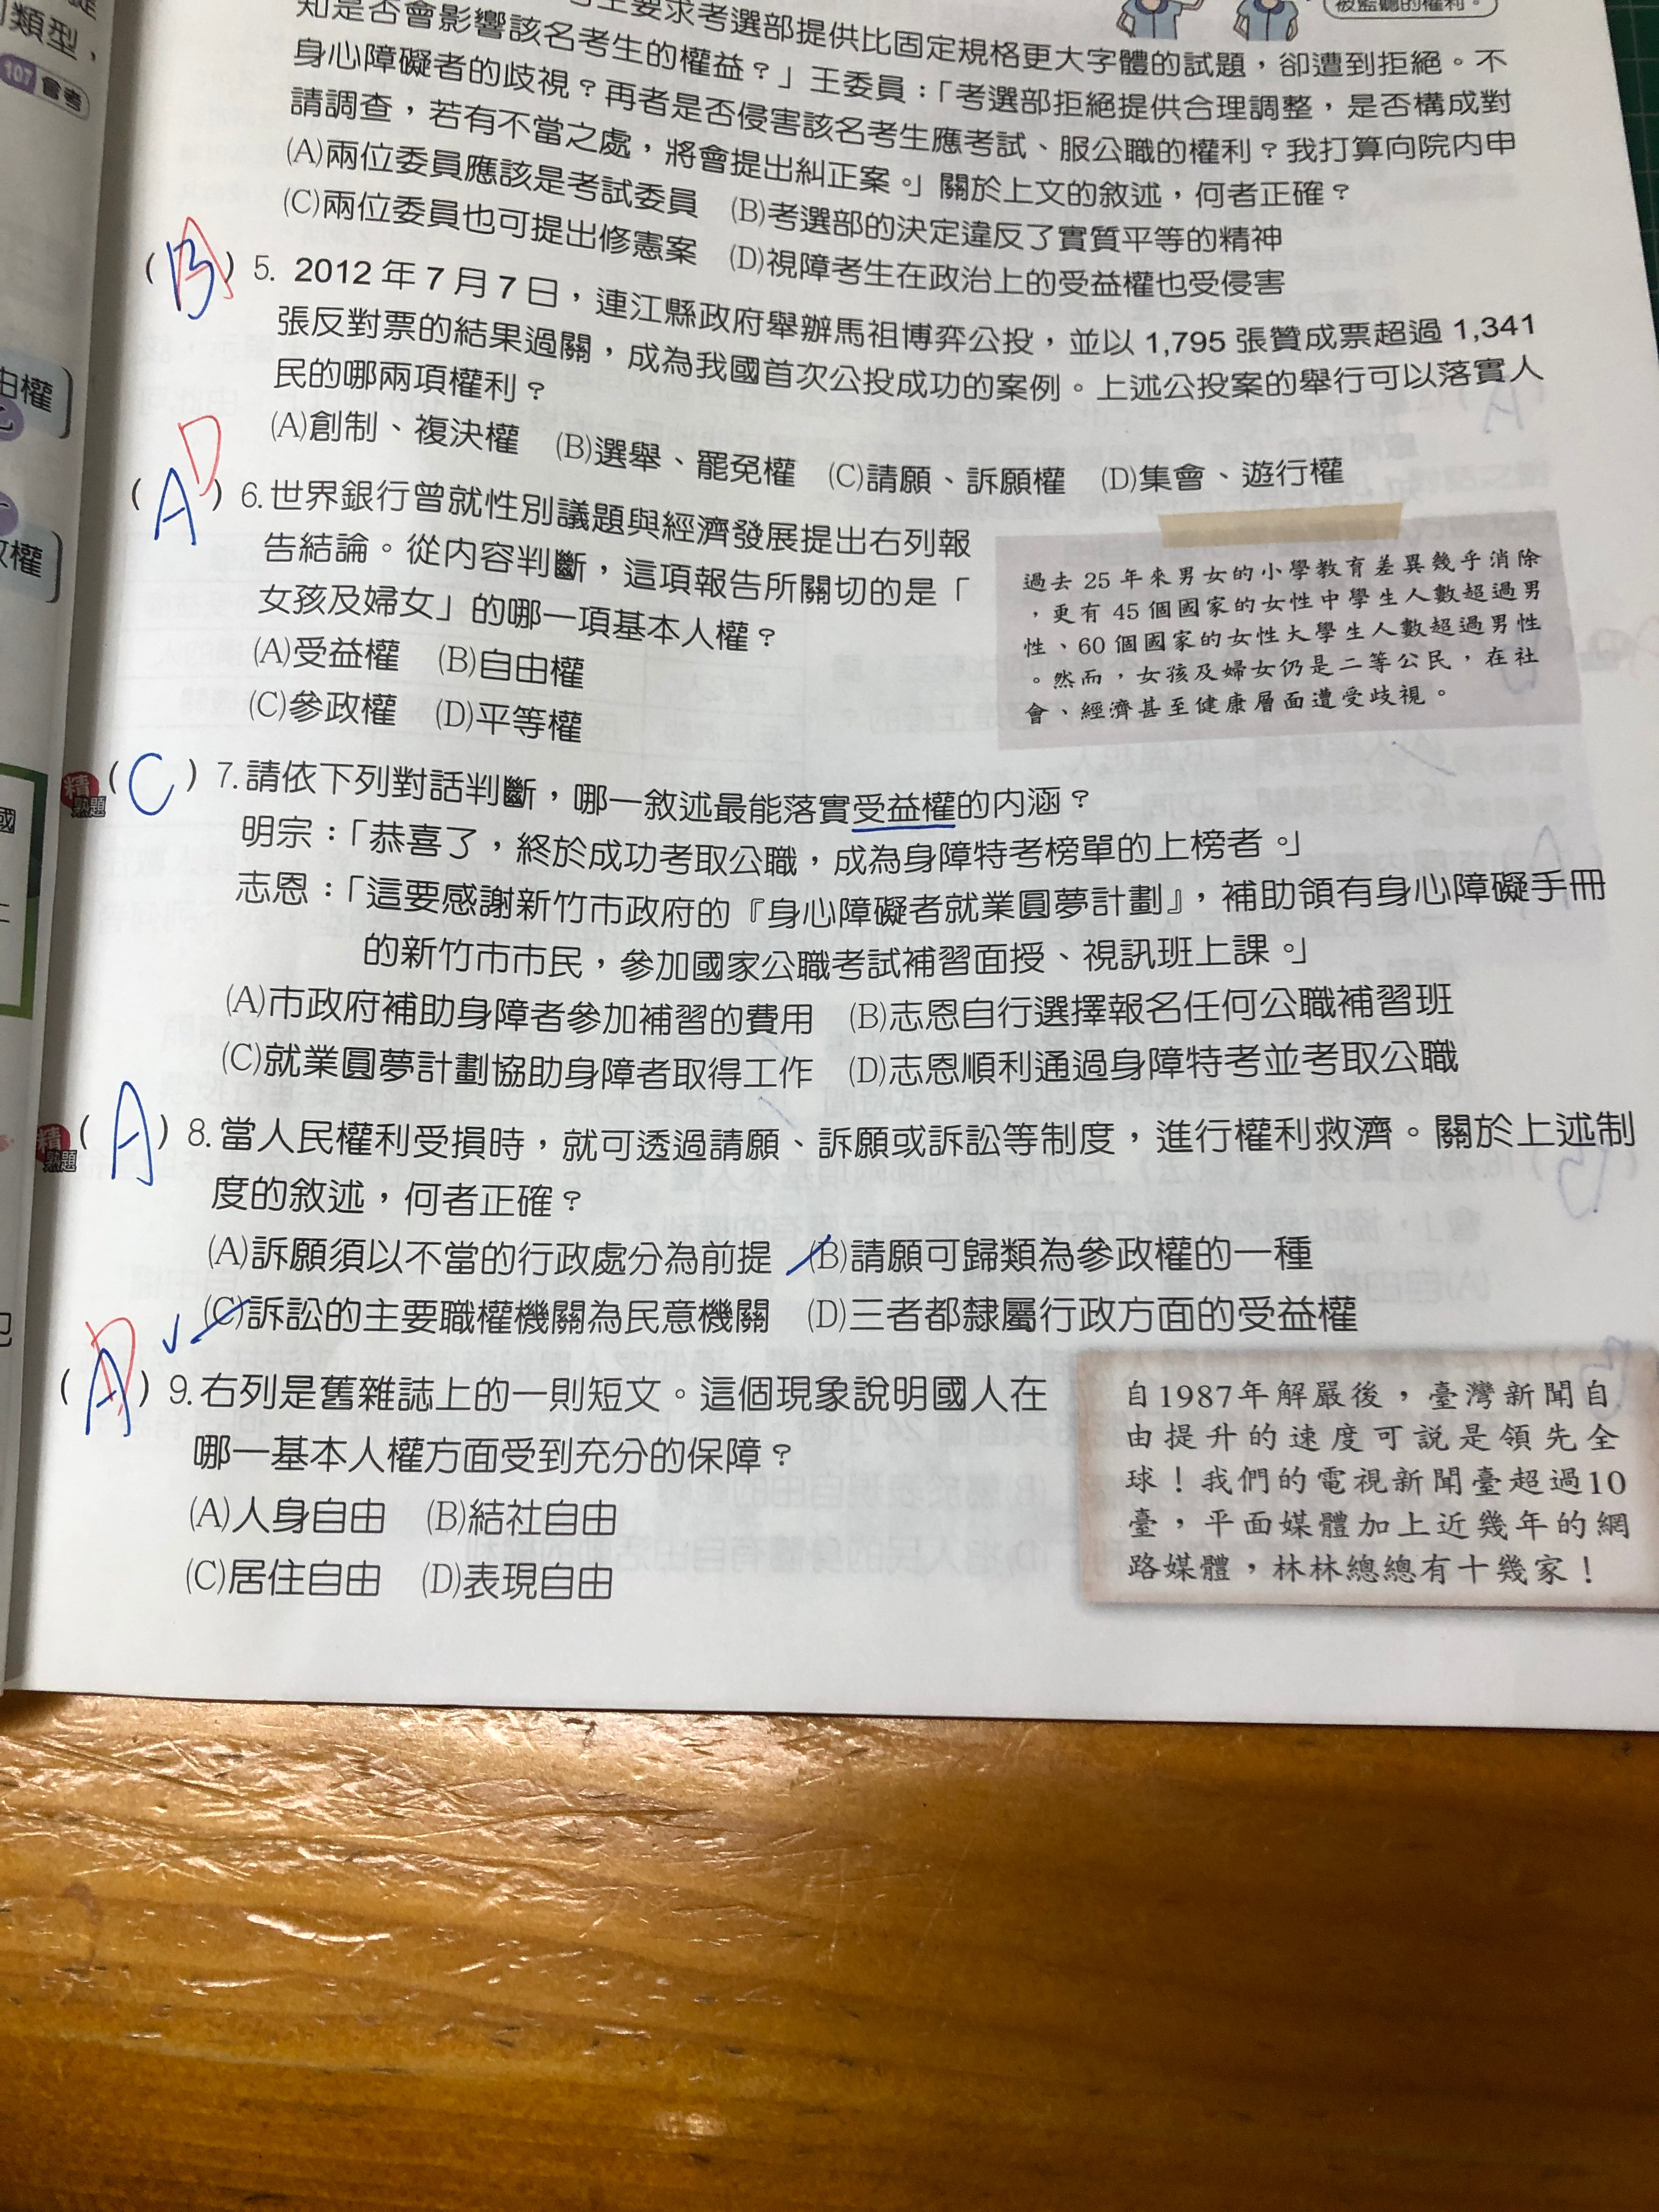 被監聽的權利。
類型，
107 會考
主要求考選部提供比固定規格更大字體的試題，卻遭到拒絕。不
知是否會影響該名考生的權益？」王委員：「考選部拒絕提供合理調整，是否構成對
身心障礙者的歧視？再者是否侵害該名考生應考試、服公職的權利？我打算向院內申
請調查，若有不當之處，將會提出糾正案。」關於上文的敘述，何者正確？
(A)兩位委員應該是考試委員 (B)考選部的決定違反了實質平等的精神
(C)兩位委員也可提出修憲案 (D)視障考生在政治上的受益權也受侵害
(A) 5. 2012 年 7 月 7 日，連江縣政府舉辦馬祖博弈公投，並以 1,795 張贊成票超過 1,341
張反對票的結果過關，成為我國首次公投成功的案例。上述公投案的舉行可以落實人
民的哪兩項權利？
(A)創制、複決權 (B)選舉、罷免權 (C)請願、訴願權 (D)集會、遊行權
由權
權
(A D) 6.世界銀行曾就性別議題與經濟發展提出右列報
告結論。從內容判斷，這項報告所關切的是「
女孩及婦女」的哪一項基本人權？
(A)受益權 (B)自由權
(C)參政權 (D)平等權
過去 25 年來男女的小學教育差異幾乎消除
，更有 45 個國家的女性中學生人數超過男
性、60 個國家的女性大學生人數超過男性
。然而，女孩及婦女仍是二等公民，在社
會、經濟甚至健康層面遭受歧視。
精熟題 (C) 7.請依下列對話判斷，哪一敘述最能落實受益權的內涵？
明宗：「恭喜了，終於成功考取公職，成為身障特考榜單的上榜者。」
志恩：「這要感謝新竹市政府的『身心障礙者就業圓夢計劃』，補助領有身心障礙手冊
的新竹市市民，參加國家公職考試補習面授、視訊班上課。」
(A)市政府補助身障者參加補習的費用 (B)志恩自行選擇報名任何公職補習班
(C)就業圓夢計劃協助身障者取得工作 (D)志恩順利通過身障特考並考取公職
精熟題 (A) 8.當人民權利受損時，就可透過請願、訴願或訴訟等制度，進行權利救濟。關於上述制
度的敘述，何者正確？
(A)訴願須以不當的行政處分為前提 (B)請願可歸類為參政權的一種
(C)訴訟的主要職權機關為民意機關 (D)三者都隸屬行政方面的受益權
(A D) 9.右列是舊雜誌上的一則短文。這個現象說明國人在
哪一基本人權方面受到充分的保障？
(A)人身自由 (B)結社自由
(C)居住自由 (D)表現自由
自1987年解嚴後，臺灣新聞自
由提升的速度可說是領先全
球！我們的電視新聞臺超過10
臺，平面媒體加上近幾年的網
路媒體，林林總總有十幾家！